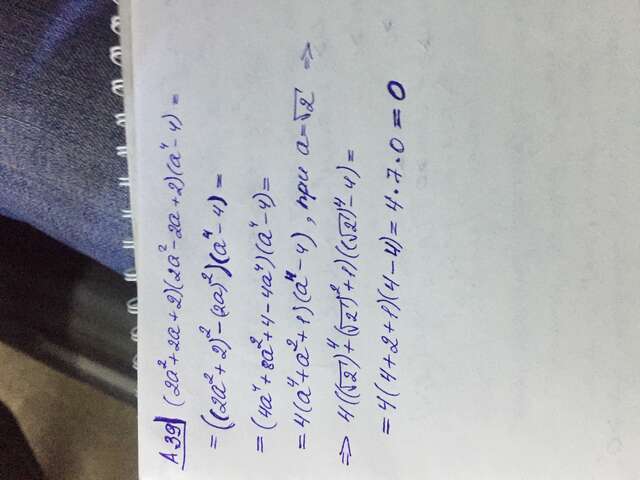 A39 (2a²+2a+2)(2a²-2a+2)(a⁴-4)=
=((2a²+2)²-(2a)²)(a⁴-4)=
=(4a⁴+8a²+4-4a⁴)(a⁴-4)=
=4(a⁴+a²+1)(a⁴-4), при a=√2 =>
=> 4((√2)⁴+(√2)²+1)((√2)⁴-4)=
=4(4+2+1)(4-4)=4·7·0=0